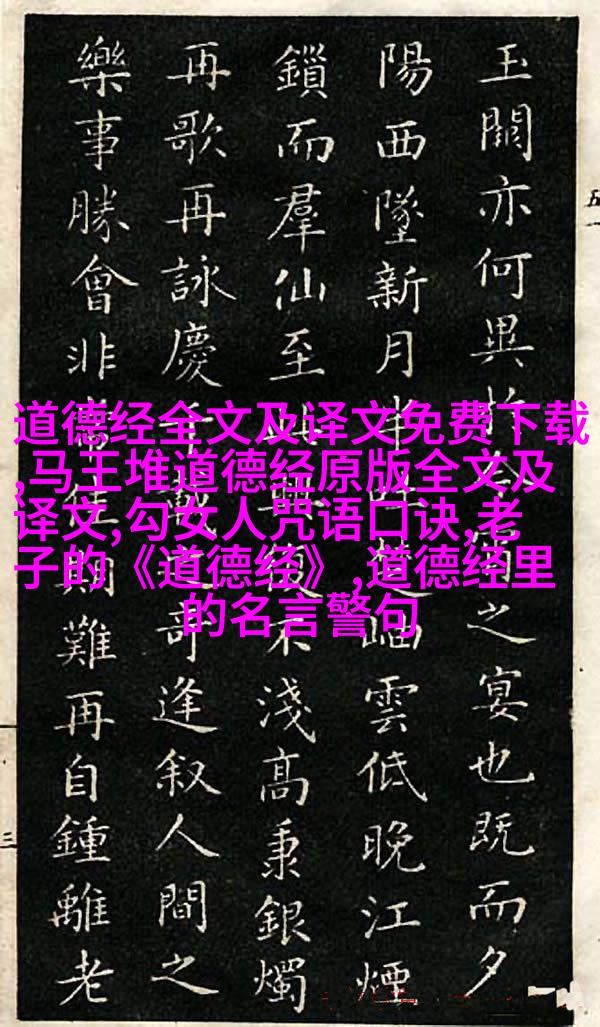 玉闕亦何異於今宵之宴也既而夕
陽西墜新月半楚岫雲低晚江煙
鎖而羣仙至此興復不淺高秉銀燭
再歌再詠慶千載之奇逢叙人間之
樂事勝會非常佳期難再自鍾離老
五一
三
道德经全文及译文免费下载
,马王堆道德经原版全文及
译文,勾女人咒语口诀,老
子的《道德经》,道德经里
的名言警句